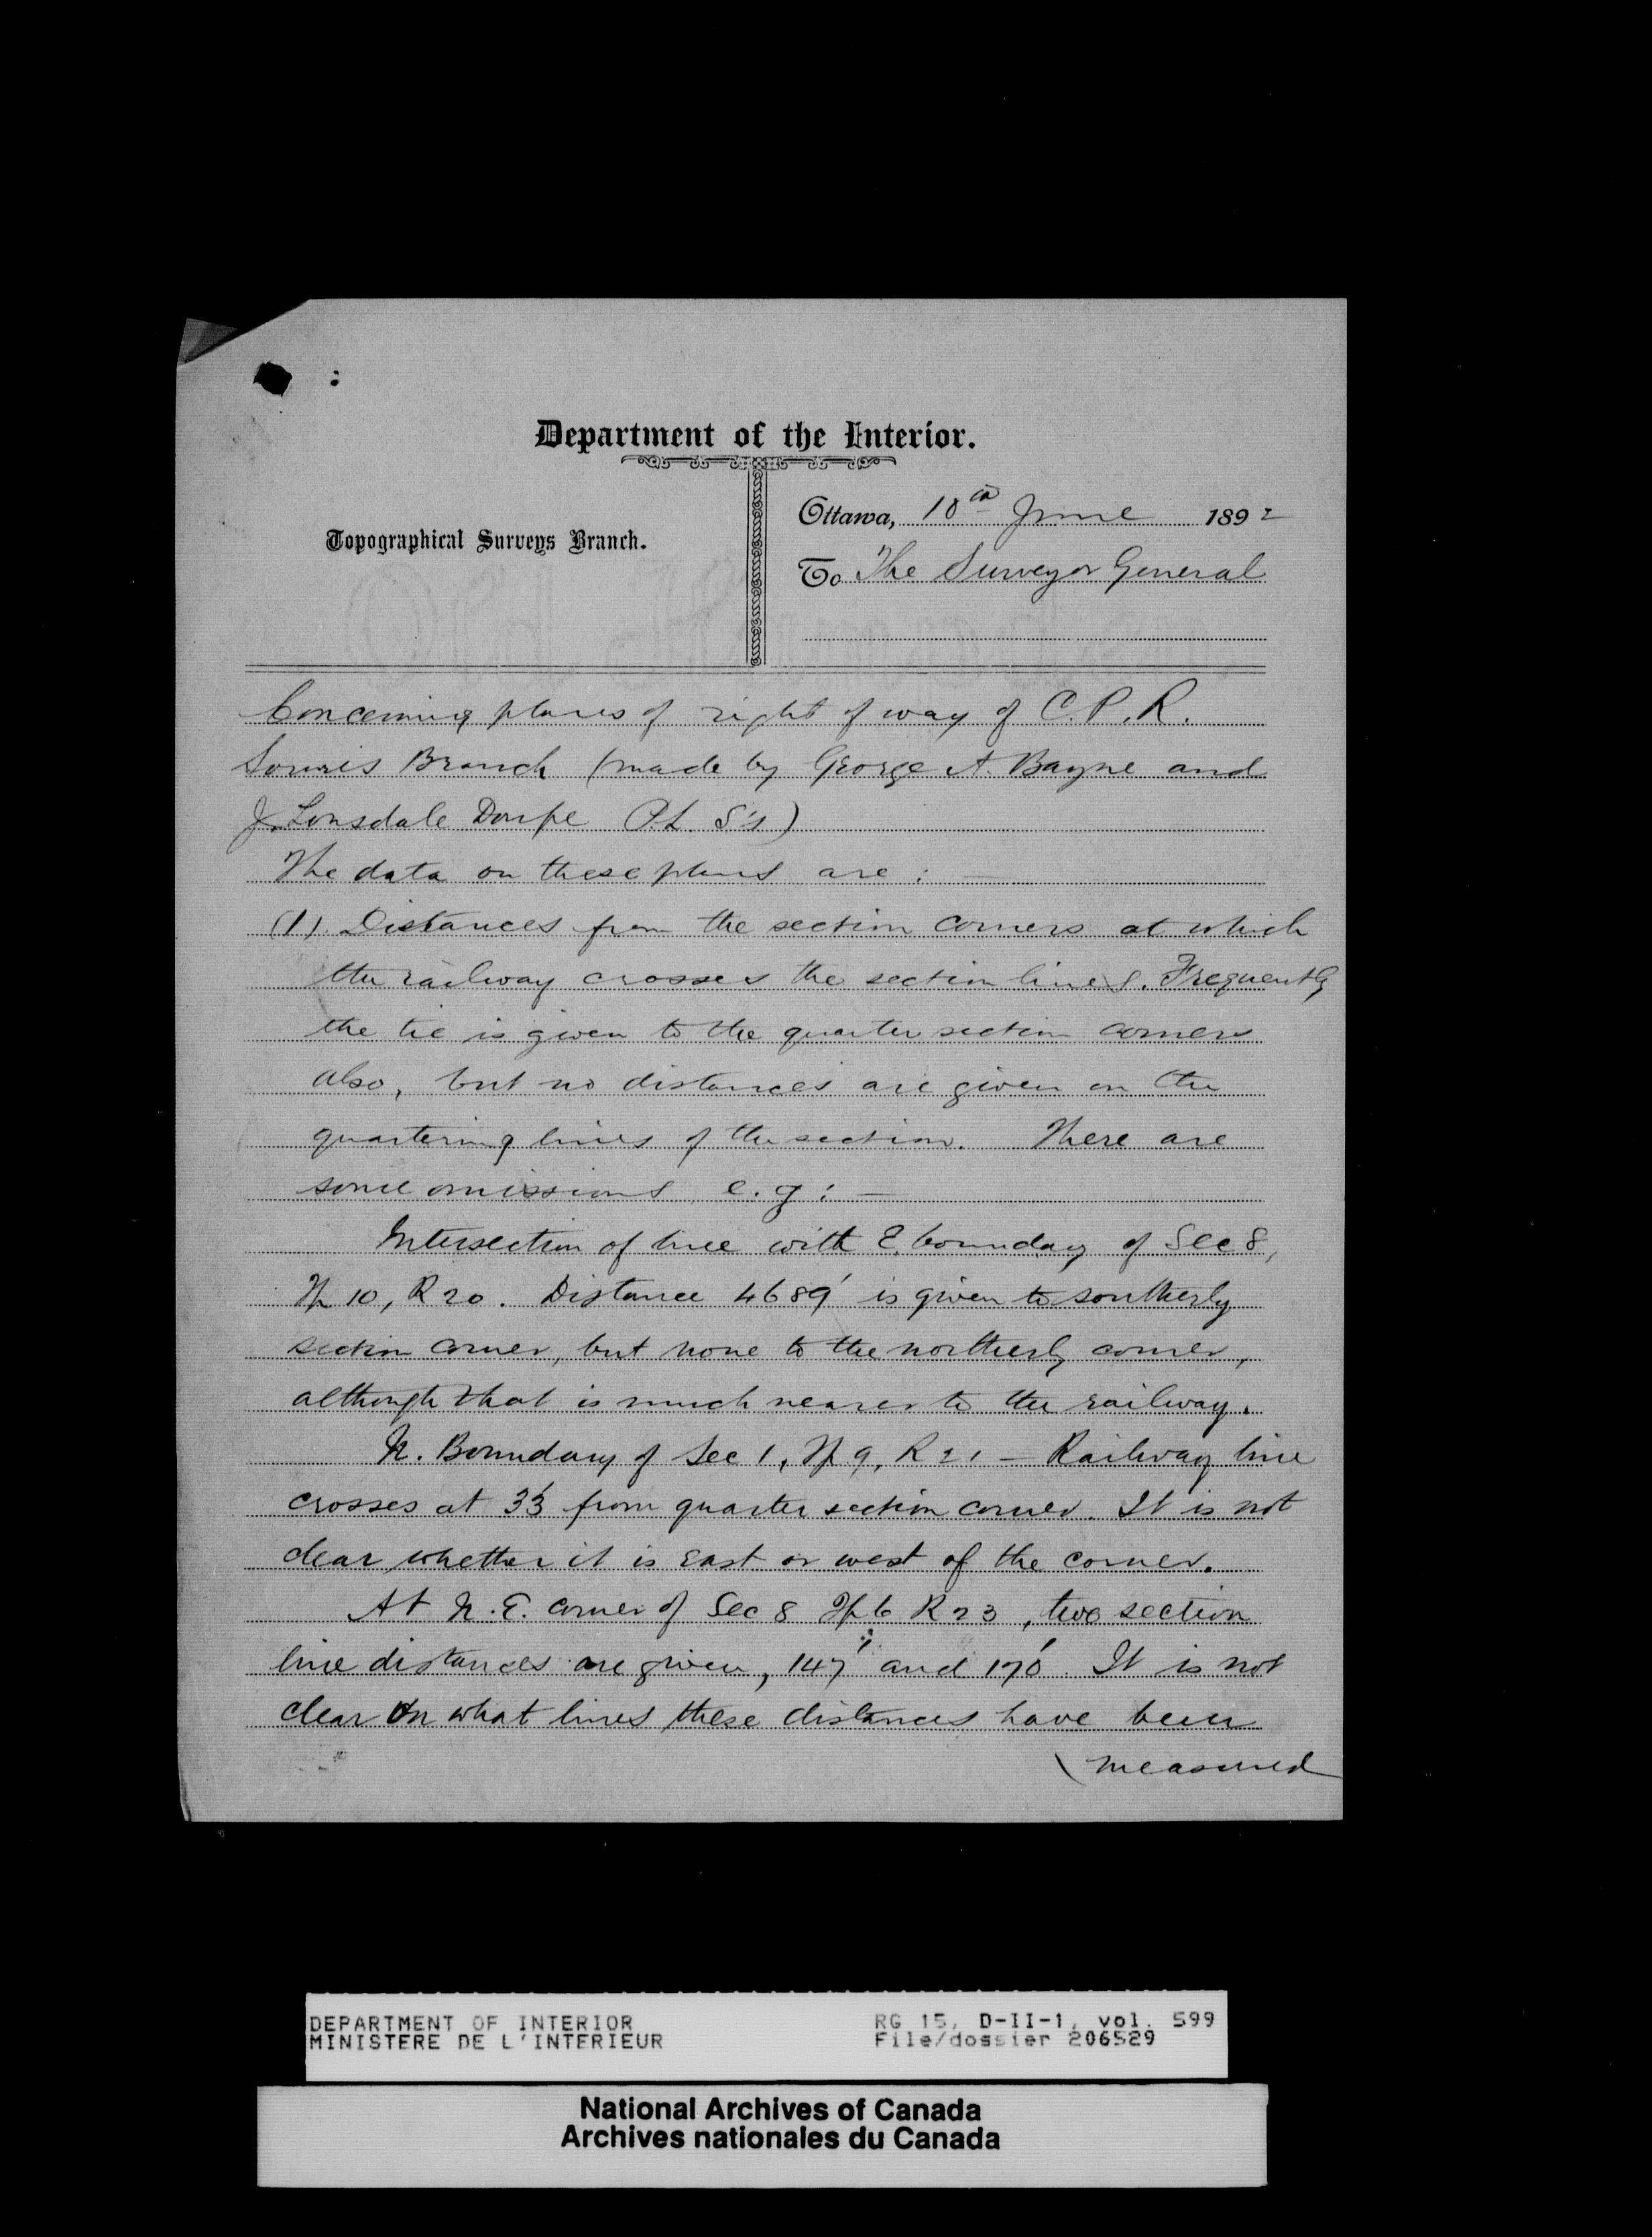 Department of the Interior.
Topographical Surveys Branch.
Ottawa, 10th June 1892
To The Surveyor General
Concerning plans of right of way of C.P.R.
Souris Branch (made by George A. Bayne and
J. Lonsdale Doupe P.L.S's)
The data on these plans are: —
(1) Distances from the section corners at which
the railway crosses the section lines. Frequently
the tie is given to the quarter section corners
also, but no distances are given on the
quartering lines of the section. There are
some omissions e.g: —
Intersection of line with E. boundary of Sec 8,
Tp 10, R 20. Distance 4689' is given to southerly
section corner, but none to the northerly corner,
although that is much nearer to the railway.
N. Boundary of Sec 1, Tp. 9, R 21 — Railway line
crosses at 33' from quarter section corner. It is not
clear whether it is east or west of the corner.
At N.E. corner of Sec 8 Tp 6 R 23, two section
line distances are given, 147' and 170'. It is not
clear on what lines these distances have been
measured
DEPARTMENT OF INTERIOR
MINISTERE DE L'INTERIEUR
RG 15, D-II-1, vol. 599
File/dossier 206529
National Archives of Canada
Archives nationales du Canada